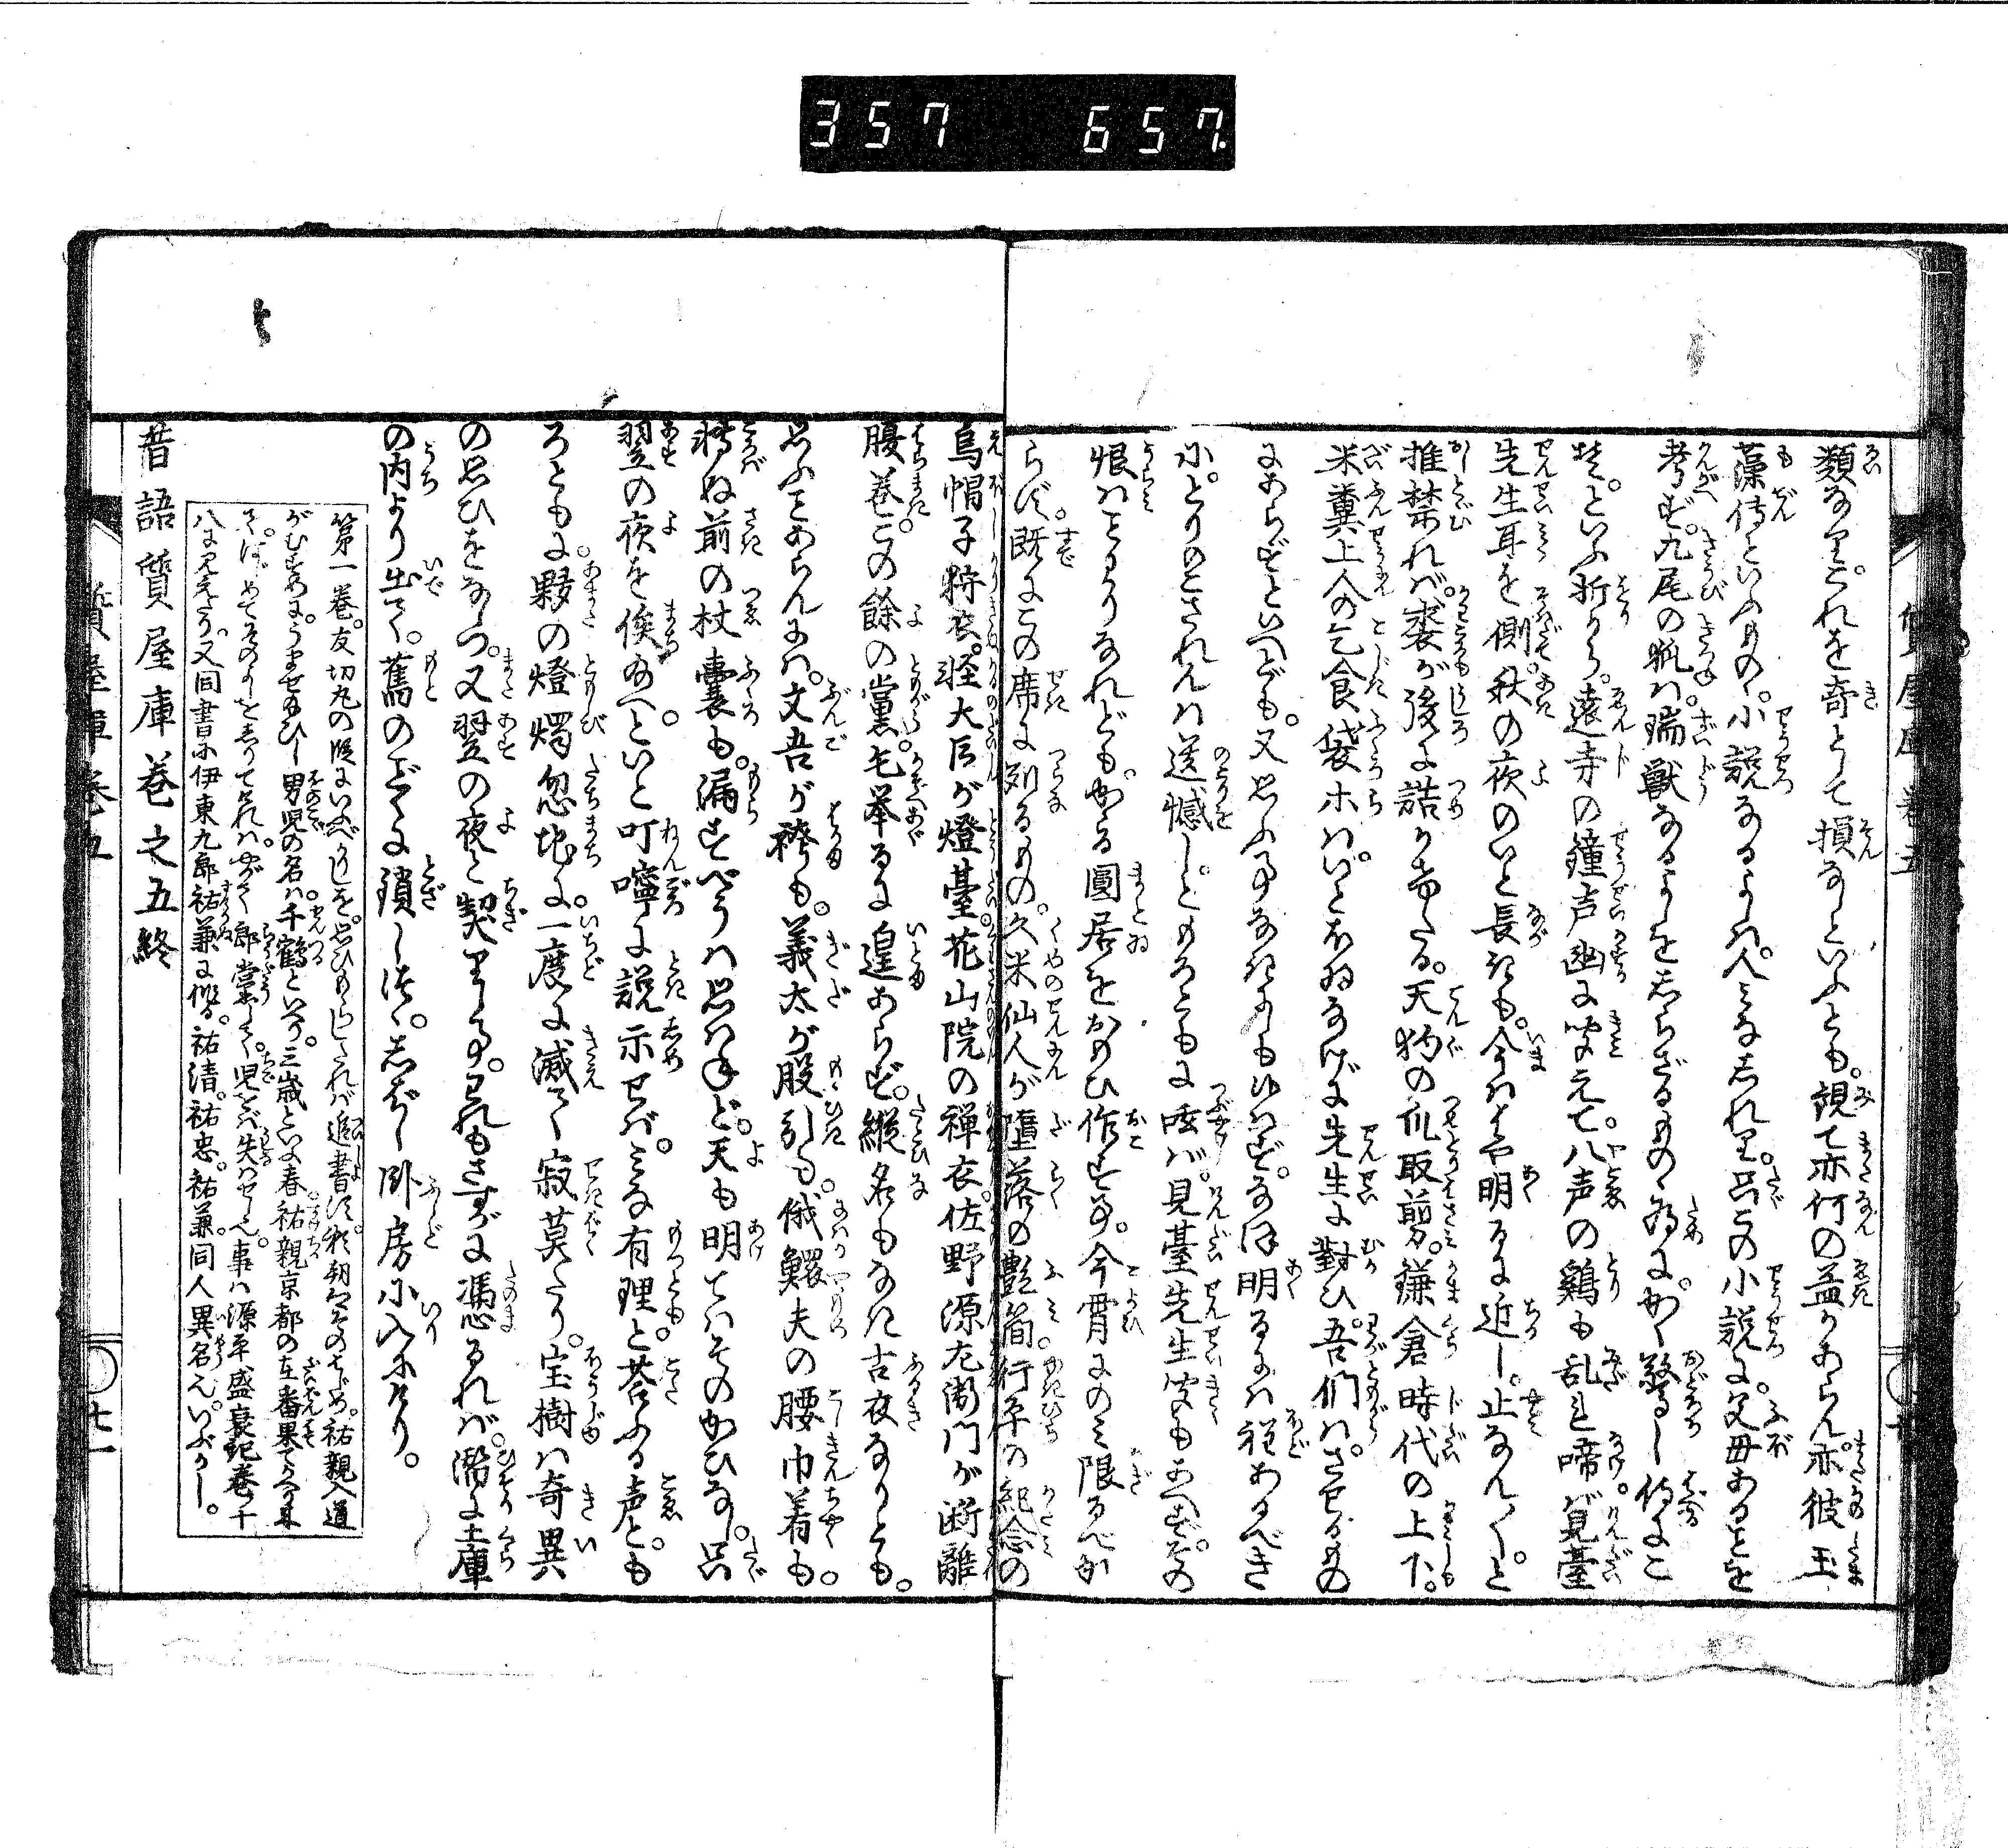 357 657
質屋庫巻五
類なり。これを奇とて損なしといふとも。親て亦何の益かあらん。亦彼玉
藻傳といふもの。小説なるよしは。人みなしれり。只この小説に。父母あることを
考ず。九尾の狐は。瑞獣なるよしをしらざるものゝ為に。かく驚し侍るこ
そ。といふ折から。遠寺の鐘声幽に聞えて。八声の鶏も乱れ啼ば。見臺
先生耳を側。秋の夜のいと長きも。今ははや明るに近し。止なん〳〵。と
推禁れば。裘が後に詰かけたる。天狗の爪取剪刀。鎌倉時代の上下。
米糞上人の乞食袋ホは。いとほゐなげに先生に對ひ。吾們は。させるもの
にあらずといへども。又思ふ事なきにも侍はず。なほ明るには程あるべき
に。とりのこされんは遺憾し。ともろともに咳ば。見臺先生聞もあへず。その
恨はことわりなれども。かゝる圓居をおもひ作す事。今宵にのみ限るべか
らず。既にこの席に列るもの。久米仙人が墮落の艶簡。行平の紀念の
烏帽子狩衣。軽大臣が燈臺。花山院の禅衣。佐野源左衛門が断離
腹巻。この餘の黨。毛挙るに遑あらず。縦名もなき古夜なりとも。
思ふことあらんには。文吾が袴も。義太が股引も。俄鰥夫の腰巾着も。
轉ぬ前の杖嚢も。漏すべうは思はねど。天も明てはそのかひなし。只
翌の夜を俟給へ。といと叮嚀に説示せば。みな有理と。荅ふる声と。も
ろともに。夥の燈燭忽地に。一度に滅て。寂莫たり。宝樹は奇異
の思ひをなしつ。又翌の夜と契りし事。われもさすがに憑るれば。潜に土庫
の内より出て。舊のごとくに鎖しつゝ。しばし臥房に入にけり。
第一巻。友切丸の段にいふべかりしを。思ひもらしたれば追書す。頼朝はその
はじめ。祐親入道
がむすめに。うませ給ひし男児の名は。千鶴といへり。三歳といふ春。祐親京都の大番果てかへり来
て。はじめてそのよしをしりてければ。やがて郎黨して。児をば失はせしといふ事は。源平盛衰記巻ノ十
八に見えたり。又同書に伊東九郎祐兼に作る。祐清。祐忠。祐兼。同人異名か。いぶかし。
昔語質屋庫巻之五終
質屋庫巻五
七一